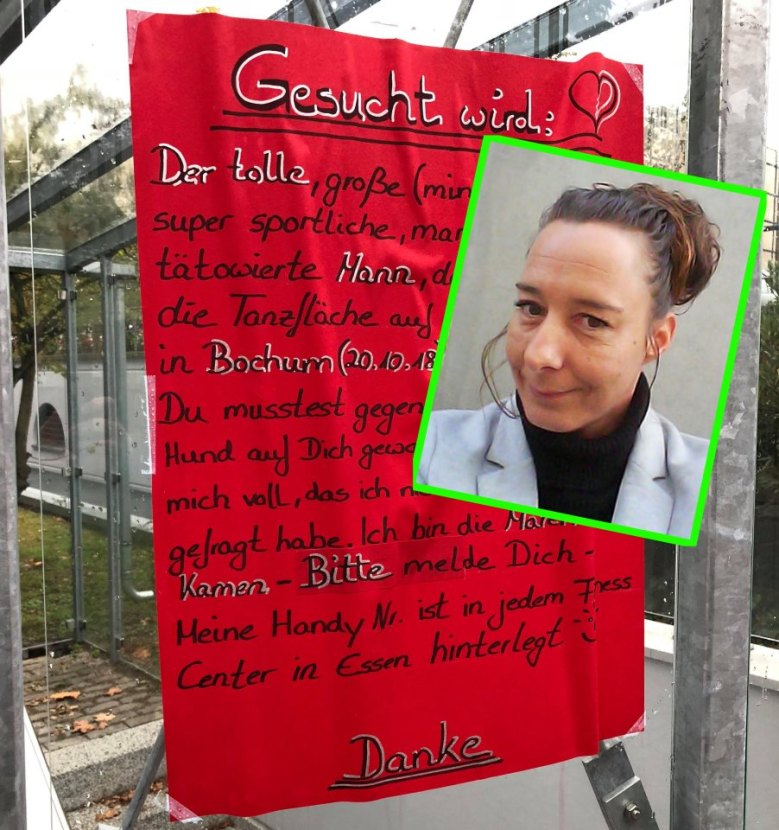 Gesucht wird:
Der tolle, große (min
super sportliche, mar
tätowierte Mann, d
die Tanzfläche auf
in Bochum (20.10.18)
Du musstest gegen
Hund auf Dich gewa
mich voll, das ich n
gefragt habe. Ich bin die Maren
Kamen - Bitte melde Dich -
Meine Handy Nr. ist in jedem Fness
Center in Essen hinterlegt
Danke